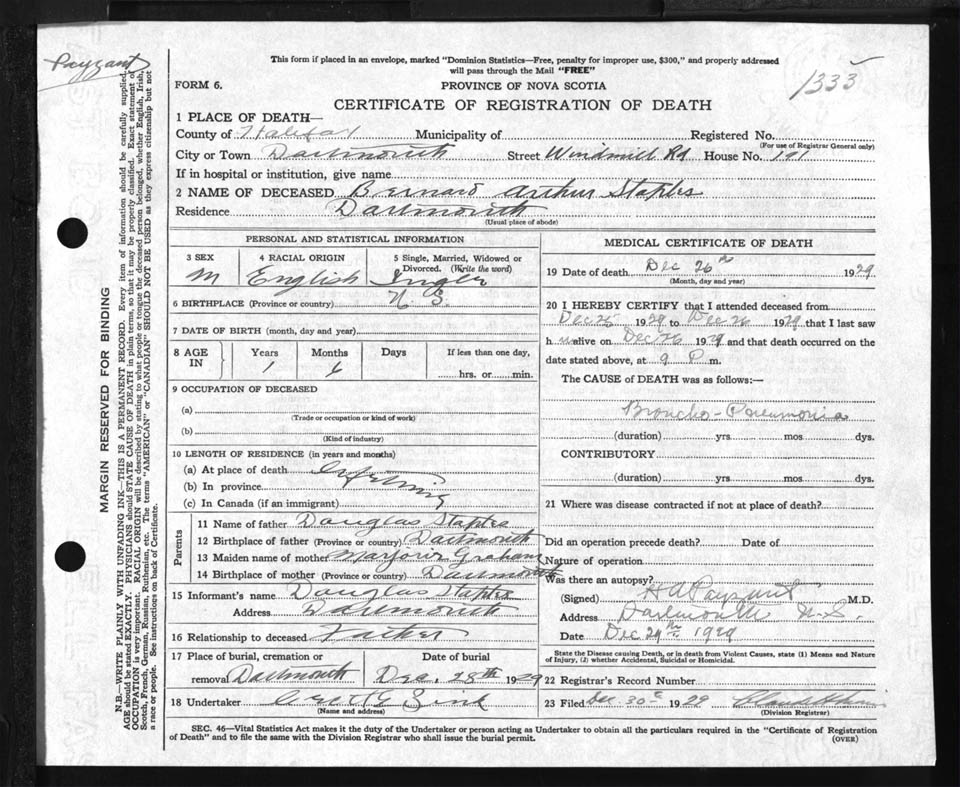 Payzant
1333
This form if placed in an envelope, marked "Dominion Statistics—Free, penalty for improper use, $300," and properly addressed
will pass through the Mail "FREE"
FORM 6.
PROVINCE OF NOVA SCOTIA
CERTIFICATE OF REGISTRATION OF DEATH
1 PLACE OF DEATH—
County of Halifax Municipality of Registered No.
(For use of Registrar General only)
City or Town Dartmouth Street Windmill Rd House No. 191
If in hospital or institution, give name
2 NAME OF DECEASED Bernard Arthur Staples
Residence Dartmouth
(Usual place of abode)
PERSONAL AND STATISTICAL INFORMATION
3 SEX 4 RACIAL ORIGIN 5 Single, Married, Widowed or
Divorced. (Write the word)
M English Single
6 BIRTHPLACE (Province or country) N S.
7 DATE OF BIRTH (month, day and year)
8 AGE IN Years Months Days If less than one day,
1 6 hrs. or min.
9 OCCUPATION OF DECEASED
(a)
(Trade or occupation or kind of work)
(b)
(Kind of industry)
10 LENGTH OF RESIDENCE (in years and months)
(a) At place of death
(b) In province Lifetime
(c) In Canada (if an immigrant)
Parents
11 Name of father Douglas Staples
12 Birthplace of father (Province or country) Dartmouth
13 Maiden name of mother Marjorie Graham
14 Birthplace of mother (Province or country) Dartmouth
15 Informant's name Douglas Staples
Address Dartmouth
16 Relationship to deceased Father
17 Place of burial, cremation or Date of burial
removal Dartmouth Dec. 28th 1929
18 Undertaker Zink
(Name and address)
MEDICAL CERTIFICATE OF DEATH
19 Date of death Dec 26th 1929
(Month, day and year)
20 I HEREBY CERTIFY that I attended deceased from
Dec 25 1929 to Dec 26 1929 that I last saw
h im alive on Dec 26 1929 and that death occurred on the
date stated above, at 9 P. m.
The CAUSE of DEATH was as follows:—
Broncho-Pneumonia
(duration) yrs mos dys.
CONTRIBUTORY
(duration) yrs. mos. dys.
21 Where was disease contracted if not at place of death?
Did an operation precede death? Date of
Nature of operation
Was there an autopsy?
(Signed) H A Payzant M.D.
Address Dartmouth N.S.
Date Dec 29th 1929
State the Disease causing Death, or in death from Violent Causes, state (1) Means and Nature
of Injury, (2) whether Accidental, Suicidal or Homicidal.
22 Registrar's Record Number
23 Filed Dec. 30th 1929
(Division Registrar)
SEC. 46—Vital Statistics Act makes it the duty of the Undertaker or person acting as Undertaker to obtain all the particulars required in the "Certificate of Registration
of Death" and to file the same with the Division Registrar who shall issue the burial permit.
(OVER)
MARGIN RESERVED FOR BINDING
N.B.—WRITE PLAINLY WITH UNFADING INK—THIS IS A PERMANENT RECORD. Every item of information should be carefully supplied.
AGE should be stated EXACTLY. PHYSICIANS should STATE CAUSE OF DEATH in plain terms, so that it may be properly classified. Exact statement of
OCCUPATION is very important. RACIAL ORIGIN will be described by stating to what people or tongue the deceased person belonged, whether English, Irish,
Scotch, French, German, Russian, Ruthenian, etc. The terms "AMERICAN" or "CANADIAN" SHOULD NOT BE USED as they express citizenship but not
a race or people. See instructions on back of Certificate.